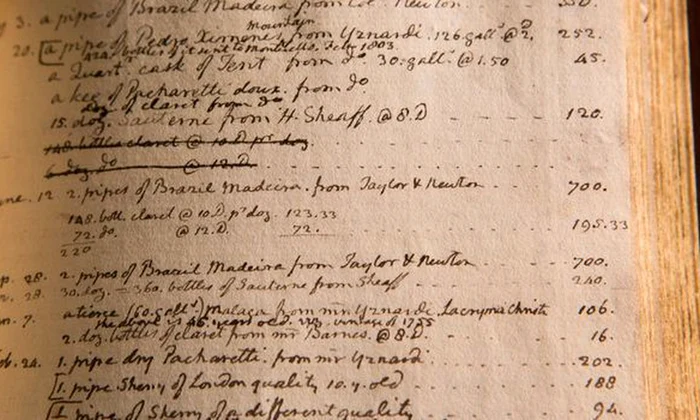 3. a pipe of Brazil Madeira from Col. Newton 350.
mountain
20. [a pipe of Pedro Ximenes from Yznardi. 126. gall.s @ 2. 252.
bottles of it sent to Monticello. Feb. 1803
a Quart. cask of Tent from do. 30. gall.s @ 1.50 45.
a keg of Pacharetti doux. from do.
doz. of claret from do.
15. doz. Sauterne from H. Sheaff. @ 8. D 120.
148. bottles claret @ 10. D. pr. doz.
6 doz. do. @ 12. D.
12. 2. pipes of Brazil Madeira. from Taylor & Newton 700.
148. bott. claret @ 10 D. pr. doz. 123.33
72. do. @ 12. D. 72. 195.33
220
28. 2. pipes of Brazil Madeira from Taylor & Newton 700.
28. 30. doz. = 360. bottles of Sauterne from Sheaff 240.
7. a tierce (60. gall.s) malaga from mr Yznardi. Lacryma Christi 106.
the above is 46. years old. viz. vintage of 1755
2. doz. bottles of claret from mr Barnes. @ 8. D. 16.
24. 1. pipe dry Pacharetti. from mr Yznardi 202.
[1. pipe Sherry of London quality 10. y. old 188
[1. pipe of Sherry of a different quality 94.